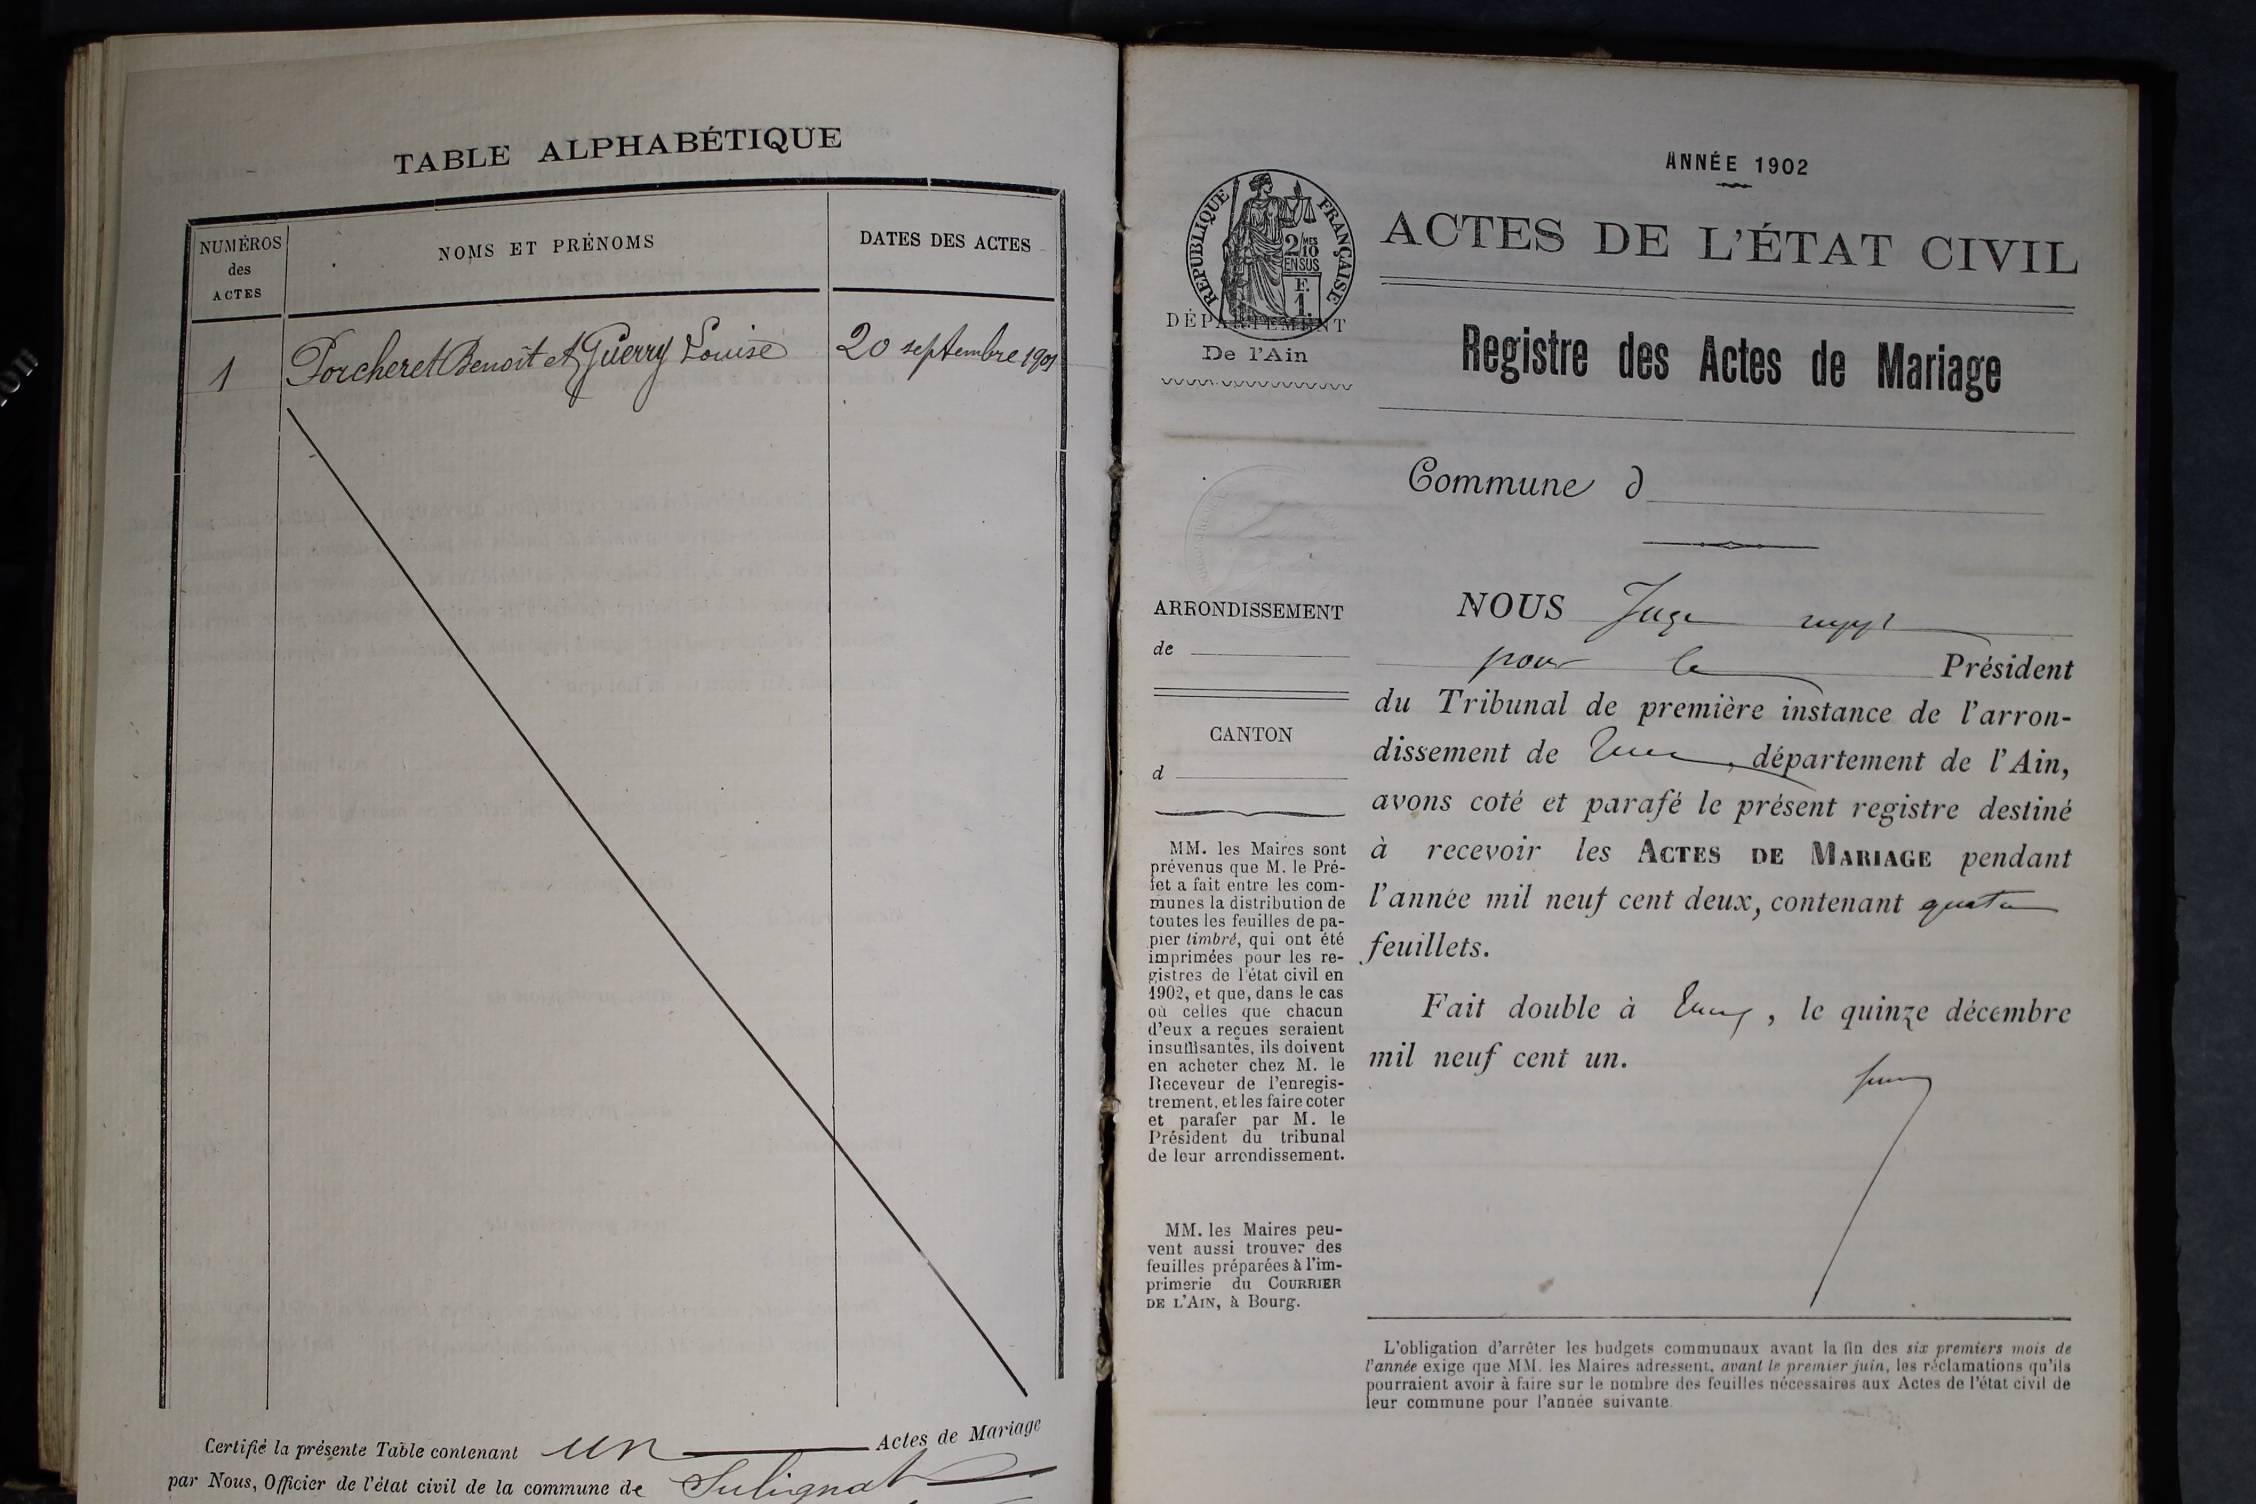 TABLE ALPHABÉTIQUE
NUMÉROS
des
ACTES
NOMS ET PRÉNOMS
DATES DES ACTES
1
Porcheret Benoît et Guerry Louise
20 septembre 1901
Certifié la présente Table contenant un Actes de Mariage
par Nous, Officier de l'état civil de la commune de Sulignat
ANNÉE 1902
RÉPUBLIQUE FRANÇAISE
2/10MES
EN SUS
F.
1.
DÉPARTEMENT
De l'Ain
ACTES DE L'ÉTAT CIVIL
Registre des Actes de Mariage
Commune d
ARRONDISSEMENT
de
CANTON
d
MM. les Maires sont
prévenus que M. le Pré-
fet a fait entre les com-
munes la distribution de
toutes les feuilles de pa-
pier timbré, qui ont été
imprimées pour les re-
gistres de l'état civil en
1902, et que, dans le cas
où celles que chacun
d'eux a reçues seraient
insuffisantes, ils doivent
en acheter chez M. le
Receveur de l'enregis-
trement, et les faire coter
et parafer par M. le
Président du tribunal
de leur arrondissement.
MM. les Maires peu-
vent aussi trouver des
feuilles préparées à l'im-
primerie du COURRIER
DE L'AIN, à Bourg.
NOUS Juge
pour le Président
du Tribunal de première instance de l'arron-
dissement de département de l'Ain,
avons coté et parafé le présent registre destiné
à recevoir les ACTES DE MARIAGE pendant
l'année mil neuf cent deux, contenant quatre
feuillets.
Fait double à , le quinze décembre
mil neuf cent un.
L'obligation d'arrêter les budgets communaux avant la fin des six premiers mois de
l'année exige que MM. les Maires adressent, avant le premier juin, les réclamations qu'ils
pourraient avoir à faire sur le nombre des feuilles nécessaires aux Actes de l'état civil de
leur commune pour l'année suivante